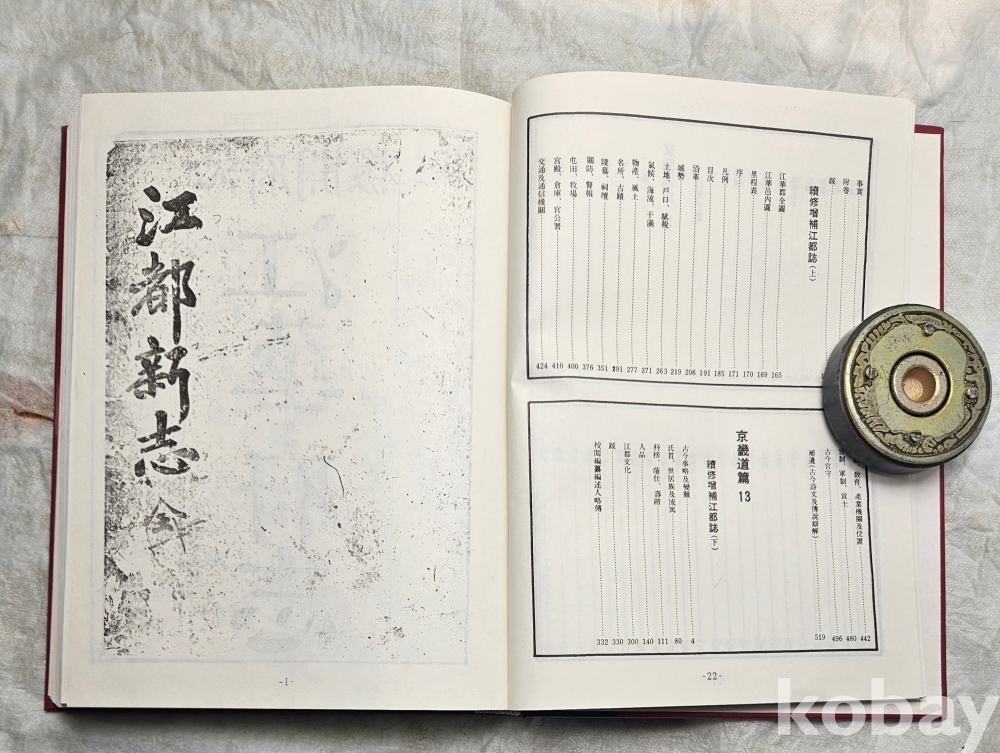 事實
附卷
跋
續修增補江都誌(上)
江華郡全圖 165
江華邑內圖 169
里程表 170
序 171
凡例 185
目次 191
沿革 206
城勢 219
土地、戶口、賦稅 263
氣候、海流、干滿 271
物產、風土 277
名所、古蹟 291
陵墓、祠壇 351
關防、警報 376
屯田、牧場 400
宮殿、倉庫、官公署 410
交通及通信機關 424
教育、產業機關及位置 442
制、軍制、貢士 480
古今官守 496
補遺(古今詩文及傳說辯解) 519
京畿道篇 13
續修增補江都誌(下)
古今事略及變難 4
氏貫、世居族及流寓 80
科榜、蔭仕、壽階 111
人品 140
江都文化 300
跋 330
校閱編纂編述人略傳 332
-22-
江都新志 全
-1-
kobay